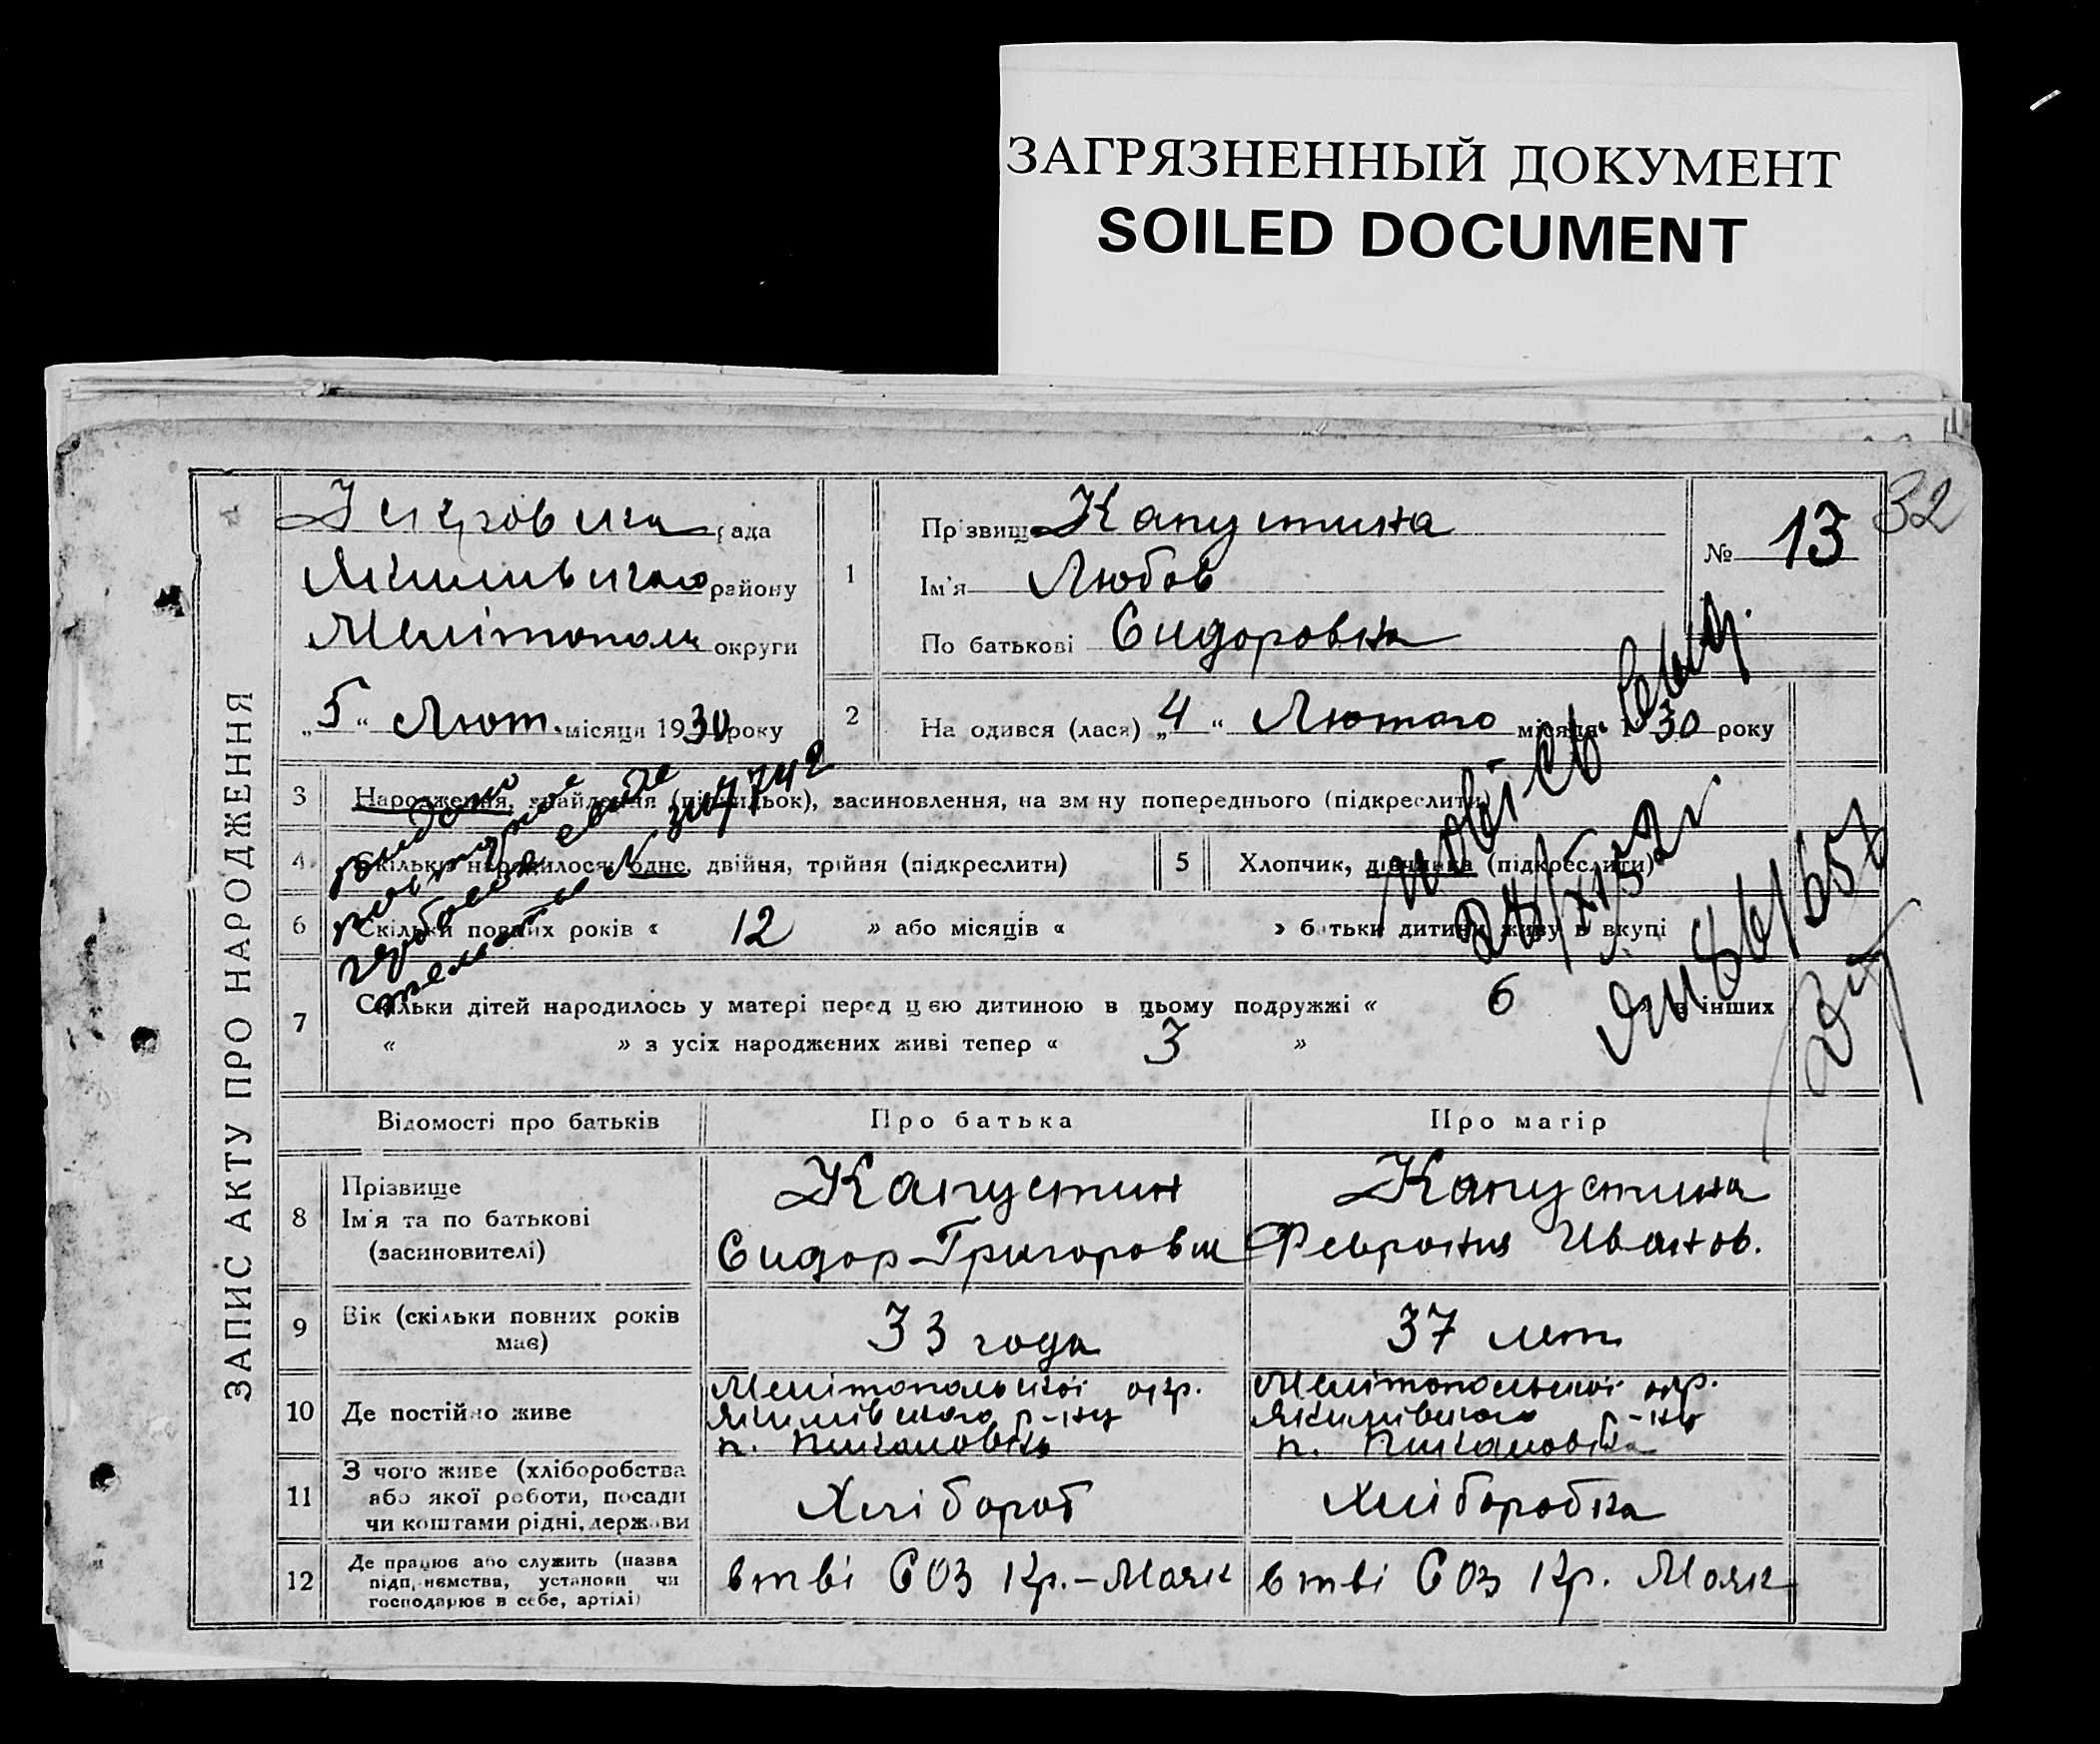 ЗАГРЯЗНЕННЫЙ ДОКУМЕНТ
SOILED DOCUMENT
32
ЗАПИС АКТУ ПРО НАРОДЖЕННЯ
рада
району
Мелітополь округи
„5“ Лют. місяця 1930 року
1
Прізвище Капустина
Ім'я Любов
По батькові Сидоровна
№ 13
2
На одився (лася) „4“ Лютого місяця 1 30 року
3 Народження, знайдення (підкидьок), засиновлення, на зм ну попереднього (підкреслити)
4 Скільки народилося: одне, двійня, трійня (підкреслити)
5 Хлопчик, дівчинка (підкреслити)
6 Скільки повних років « 12 » або місяців « » батьки дитини живу ь вкупі
7 Скільки дітей народилось у матері перед ц ею дитиною в цьому подружжі « 6 » в інших
« » з усіх народжених живі тепер « 3 »
Відомості про батьків
Про батька
Про матір
8 Прізвище
Ім'я та по батькові
(засиновителі)
Капустин
Сидор Григорович
Капустина
Феврония Иванов.
9 Вік (скільки повних років
має)
33 года
37 лет
10 Де постійно живе
Мелітопольської окр.
Якимівського р-ну
п.
Мелітопольської окр.
Якимівського р-ну
п.
11 З чого живе (хліборобства
або якої роботи, посади
чи коштами рідні, держави
Хлібороб
Хліборобка
12 Де працює або служить (назва
підп, иємства, установи чи
господарює в себе, артілі)
в тві СОЗ Кр.-Маяк
в тві СОЗ Кр. Маяк